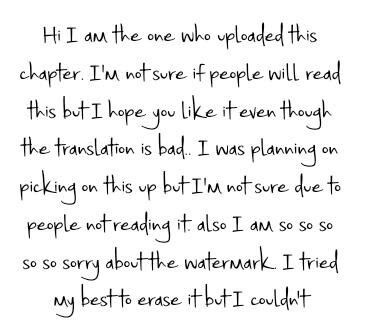 Hi I am the one who uploaded this
chapter. I'm not sure if people will read
this but I hope you like it even though
the translation is bad.. I was planning on
picking on this up but I'm not sure due to
people not reading it. also I am so so so
so so sorry about the watermark. I tried
my best to erase it but I couldn't